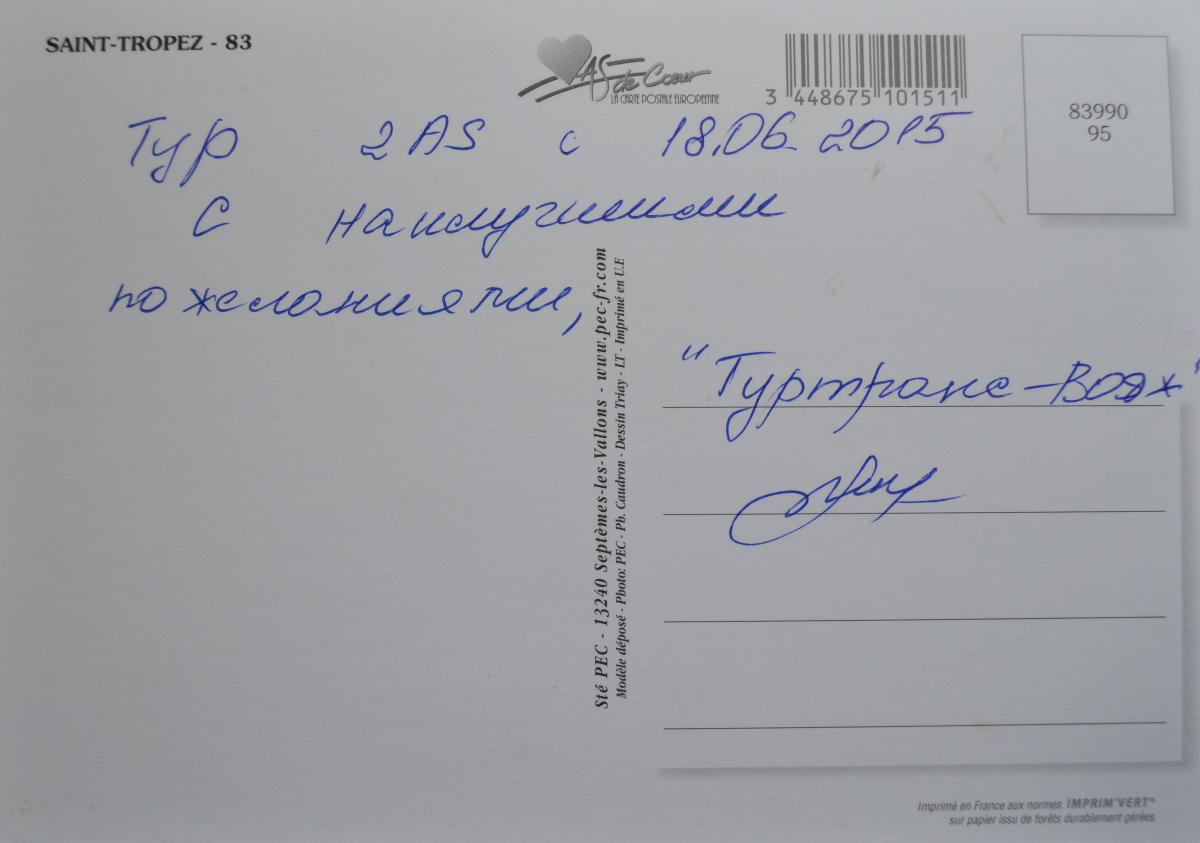 SAINT-TROPEZ - 83
AS de Cœur
LA CARTE POSTALE EUROPEENNE
3 448675 101511
83990
95
Тур 2AS с 18.06.2015
С наилучшими
пожеланиями,
"Туртранс-Вояж"
Sté PEC - 13240 Septèmes-les-Vallons - www.pec-fr.com
Modèle déposé - Photo: PEC - Pb. Caudron - Dessin Triay - LT - Imprimé en U.E
Imprimé en France aux normes IMPRIM'VERT®
sur papier issu de forêts durablement gérées